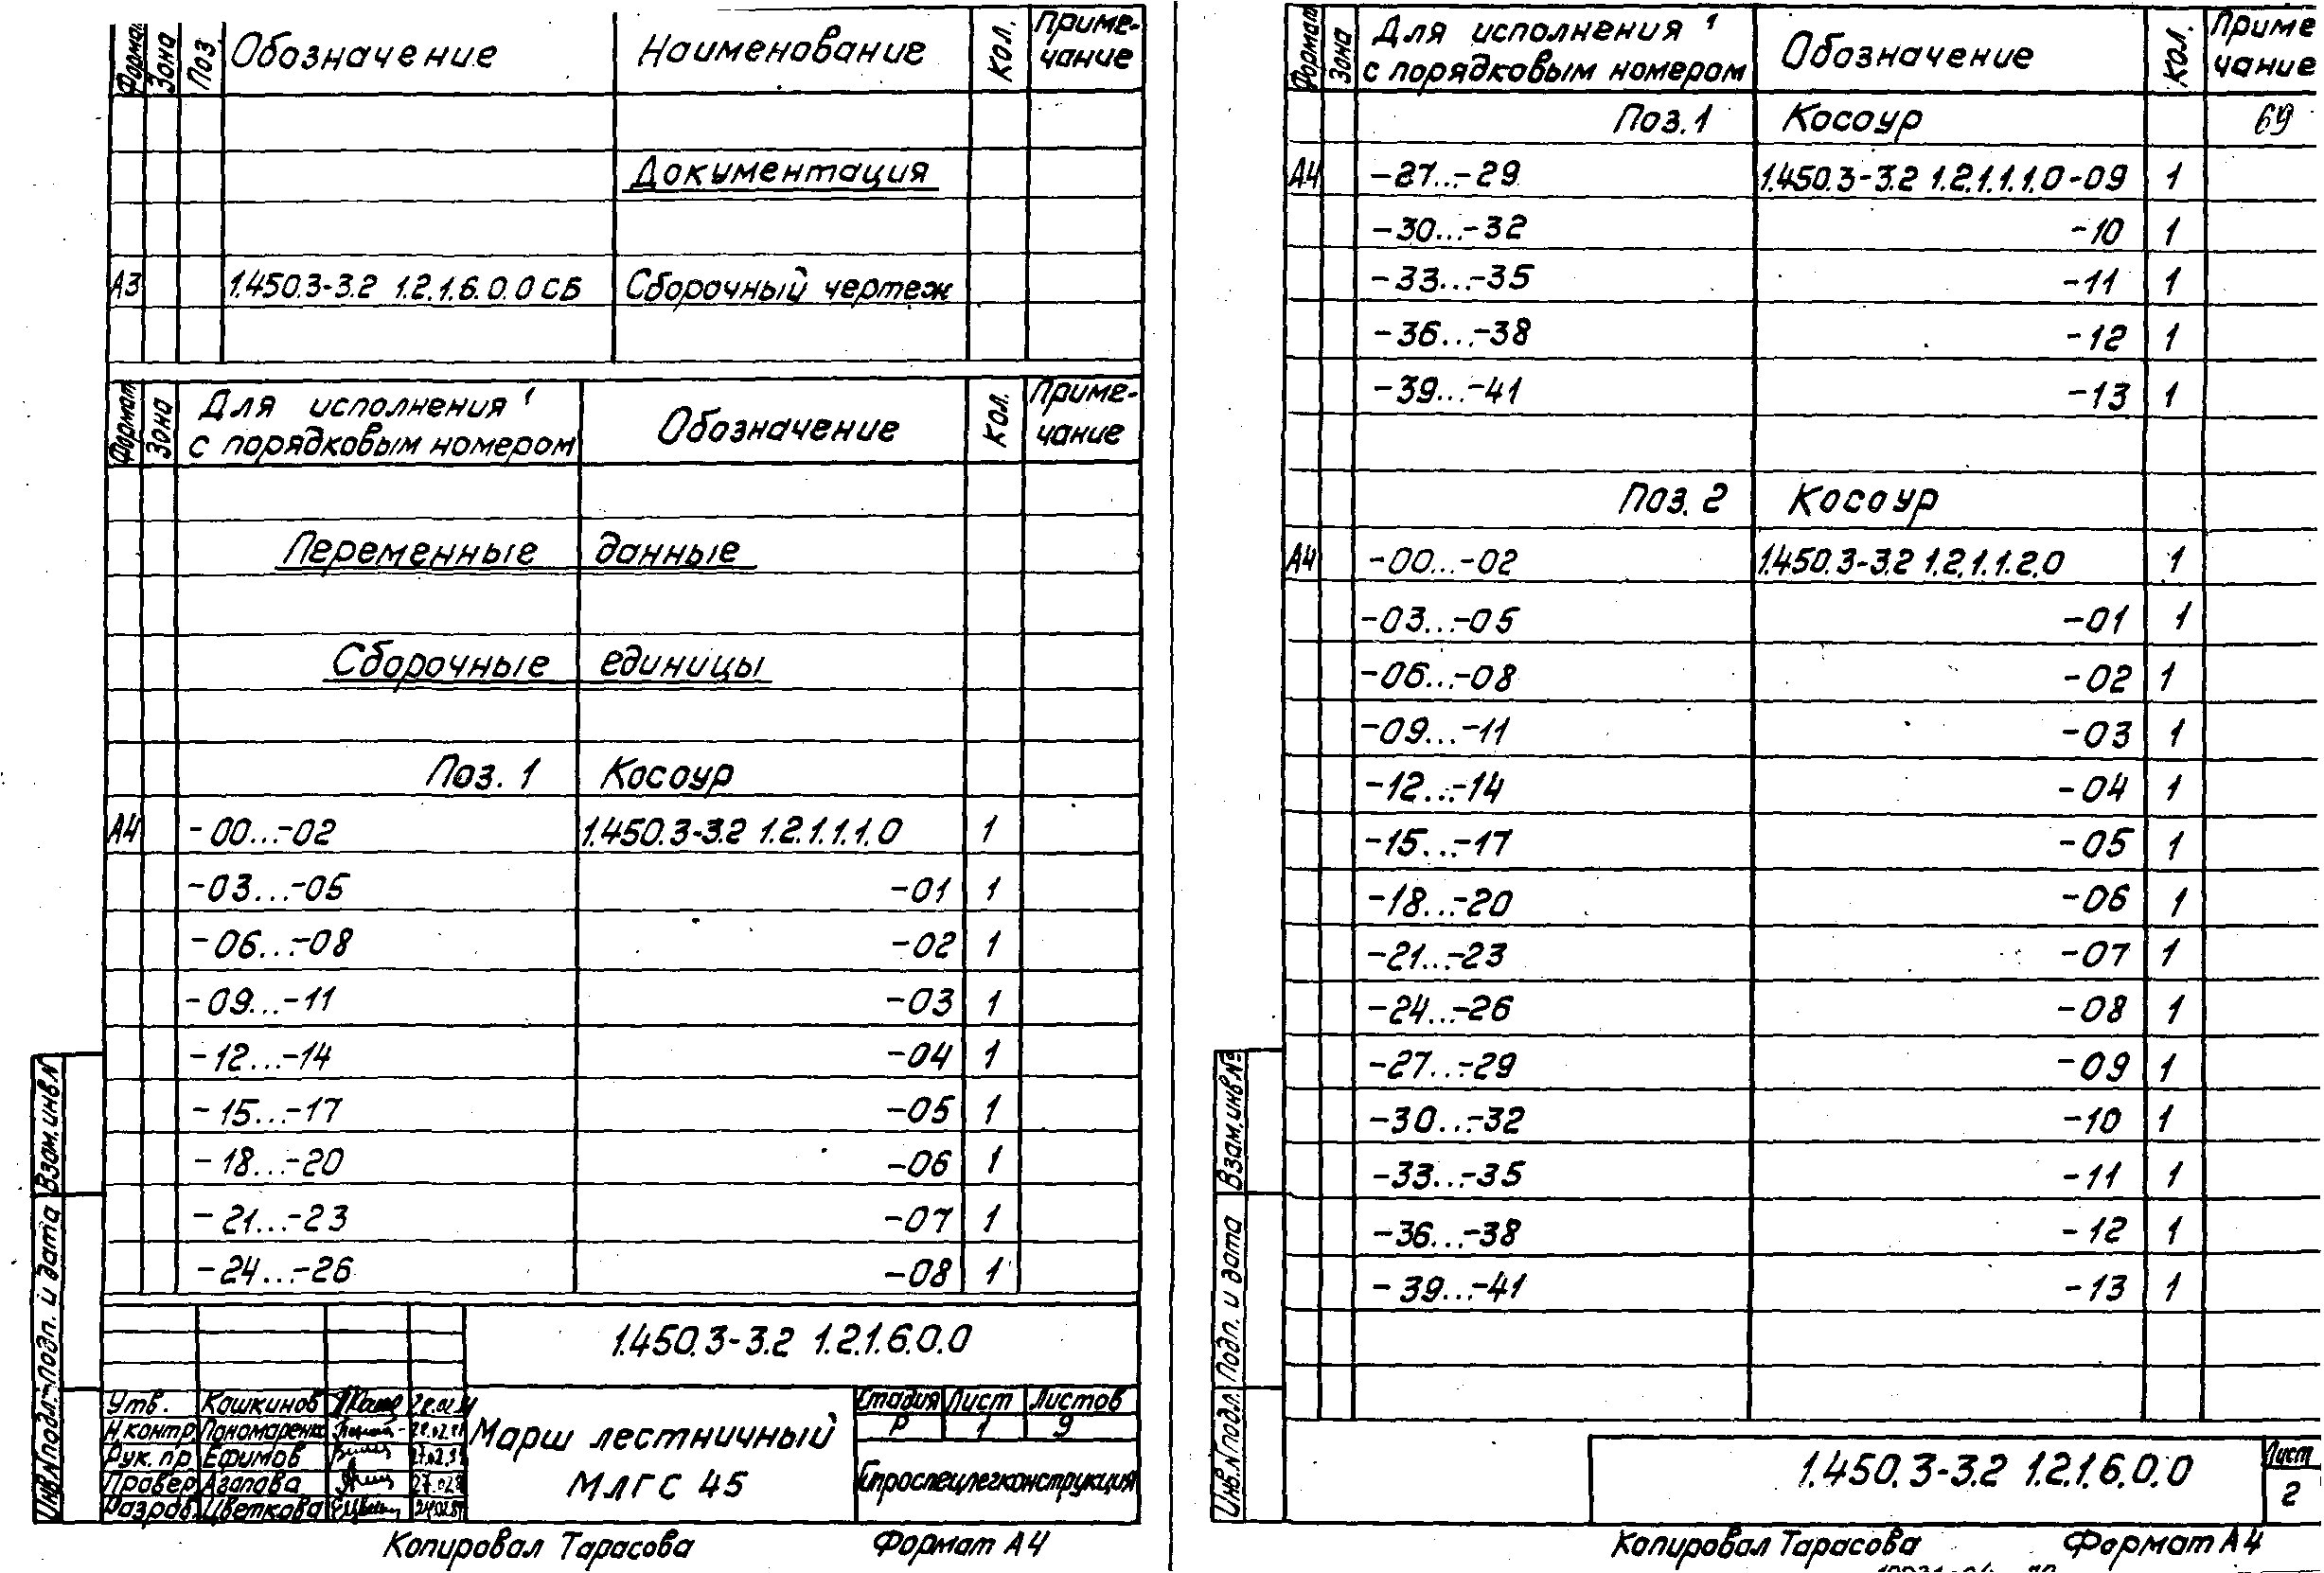 Формат Зона Поз. Обозначение Наименование Кол. Приме-
чание
Документация
А3 1.450.3-3.2 1.2.1.6.0.0 СБ Сборочный чертеж
Формат Зона Для исполнения
с порядковым номером Обозначение Кол. Приме-
чание
Переменные данные
Сборочные единицы
Поз. 1 Косоур
А4 -00...-02 1.450.3-3.2 1.2.1.1.1.0 1
-03...-05 -01 1
-06...-08 -02 1
-09...-11 -03 1
-12...-14 -04 1
-15...-17 -05 1
-18...-20 -06 1
-21...-23 -07 1
-24...-26 -08 1
Взам. инв. №
Подп. и дата
Инв. № подл.
1.450.3-3.2 1.2.1.6.0.0
Утв. Кашкинов
Н.контр Пономаренко
Рук. пр Ефимов
Провер Агапова
Разраб. Цветкова
Марш лестничный
МЛГС 45
Стадия Лист Листов
Р 1 9
Гипроспецлегконструкция
Копировал Тарасова Формат А4
Формат Зона Для исполнения
с порядковым номером Обозначение Кол. Приме
чание
Поз. 1 Косоур 69
А4 -27...-29 1.450.3-3.2 1.2.1.1.1.0-09 1
-30...-32 -10 1
-33...-35 -11 1
-36...-38 -12 1
-39...-41 -13 1
Поз. 2 Косоур
А4 -00...-02 1.450.3-3.2 1.2.1.1.2.0 1
-03...-05 -01 1
-06...-08 -02 1
-09...-11 -03 1
-12...-14 -04 1
-15...-17 -05 1
-18...-20 -06 1
-21...-23 -07 1
-24...-26 -08 1
-27...-29 -09 1
-30...-32 -10 1
-33...-35 -11 1
-36...-38 -12 1
-39...-41 -13 1
Взам. инв. №
Подп. и дата
Инв. № подл.
1.450.3-3.2 1.2.1.6.0.0
Лист
2
Копировал Тарасова Формат А4